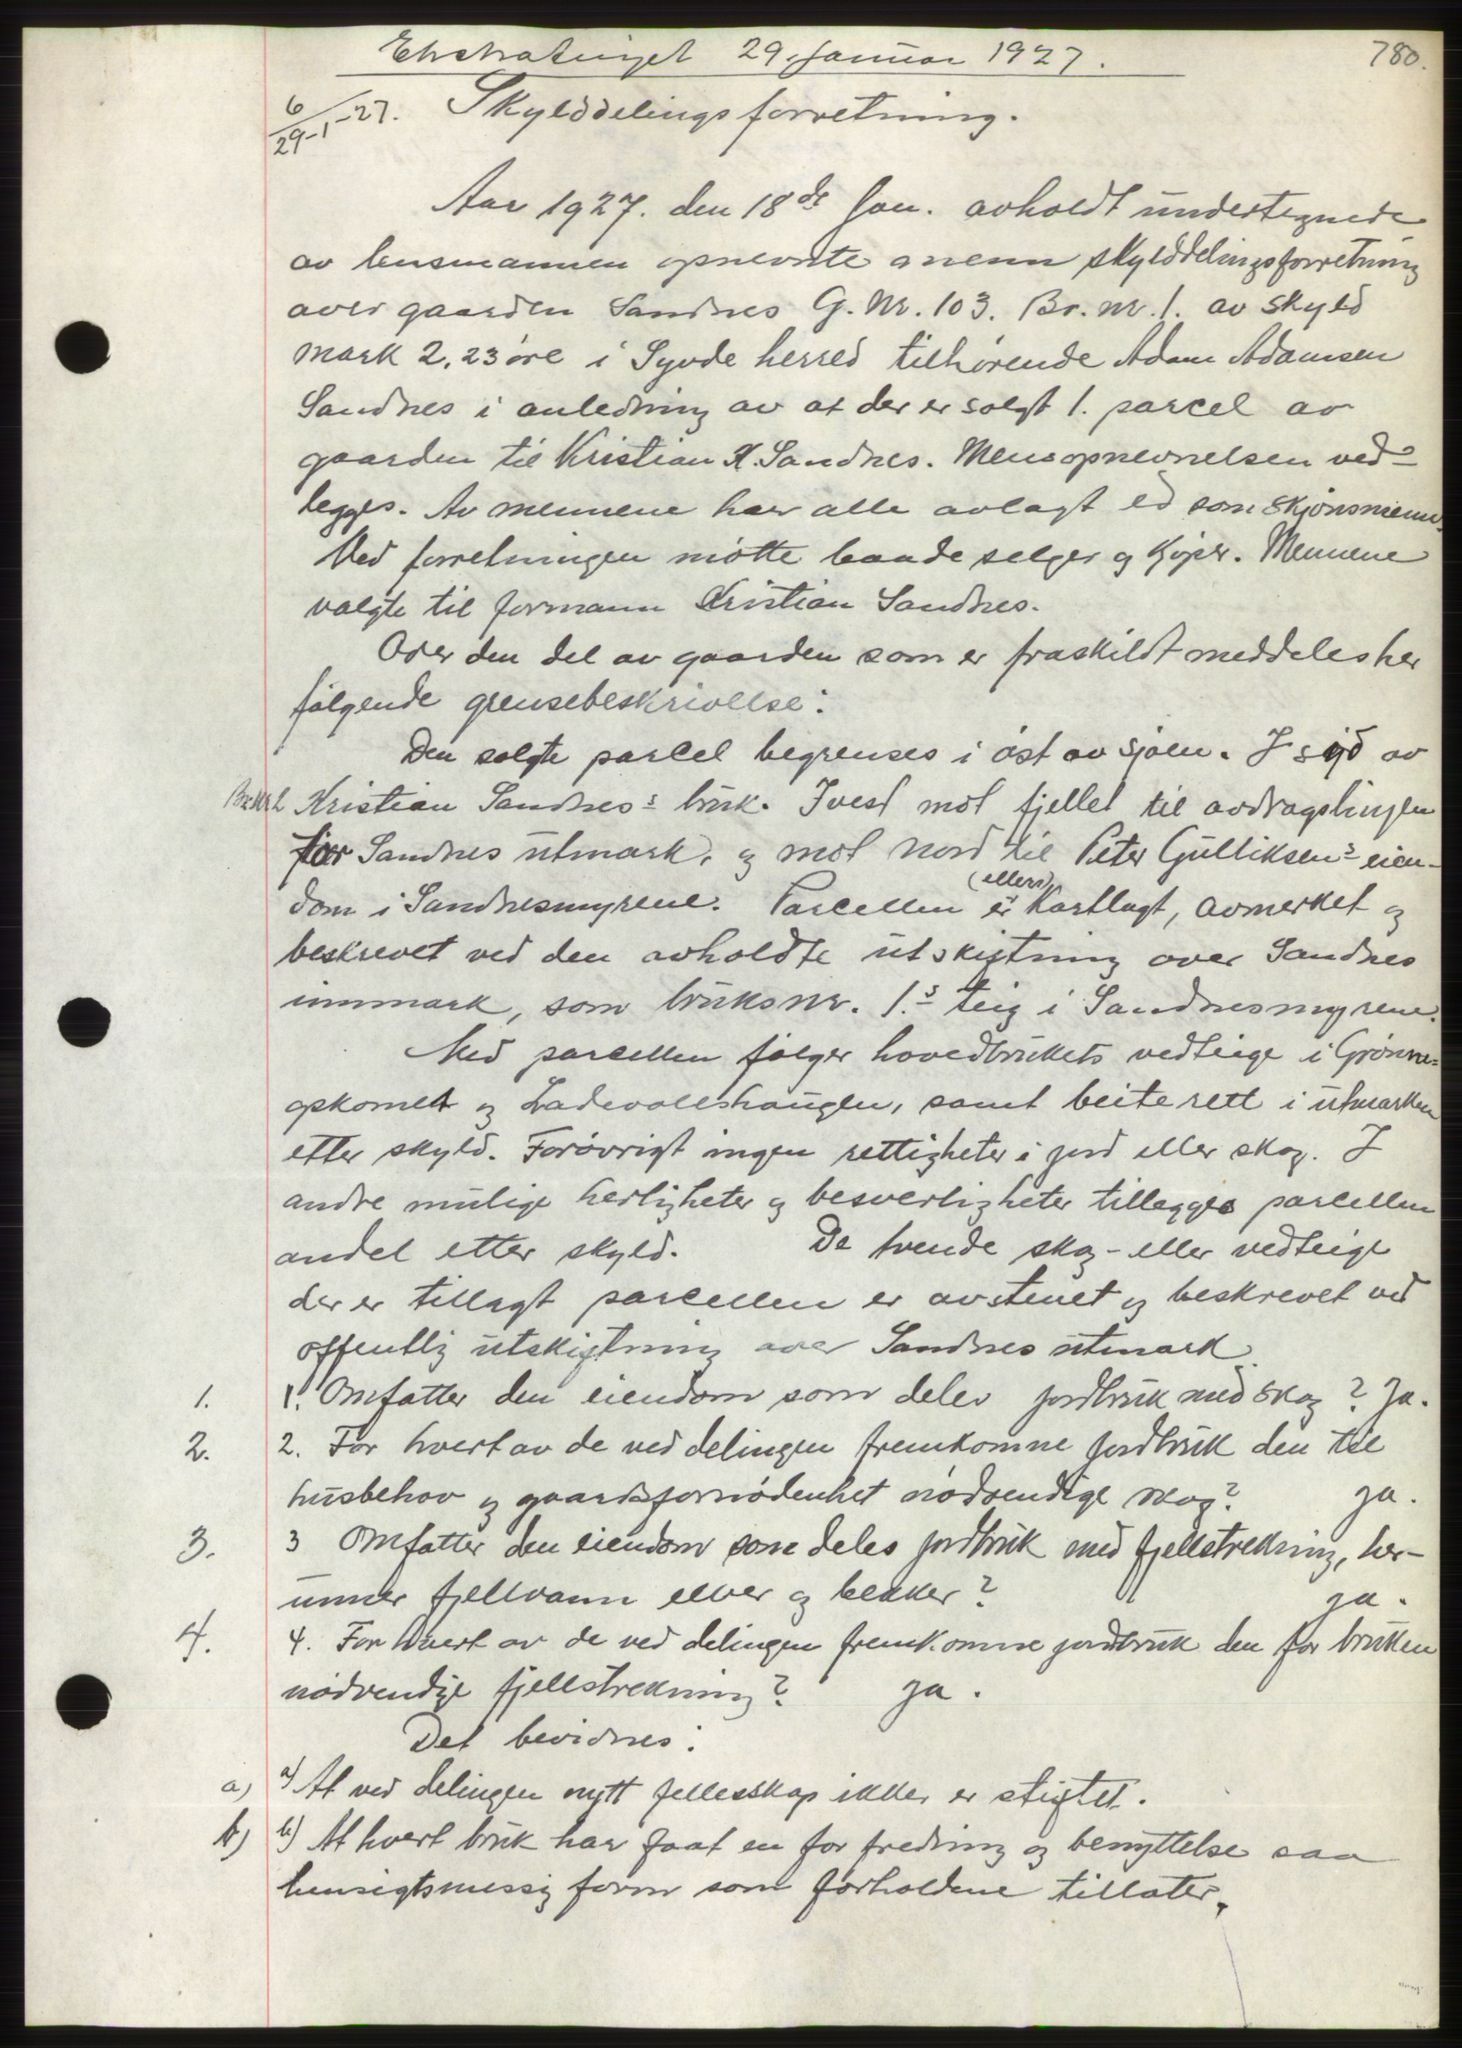 Ekstratinget 29. januar 1927.
780.
6/29-1-27. Skylddelingsforretning.
Aar 1927. den 18de Jan. avholdt undertegnede
av lensmannen opnevnte menn skylddelingsforretning
over gaarden Sandnes G. Nr. 103. Br. nr. 1. av skyld
mark 2,23 øre i Syvde herred tilhørende Adam Adamsen
Sandnes i anledning av at der er solgt 1. parcel av
gaarden til Kristian K. Sandnes. Mensopnevnelsen ved-
legges. Av mennene har alle avlagt ed som skjønsmenn.
Ved forretningen møtte baade selger og kjøper. Mennene
valgte til formann Kristian Sandnes.
Over den del av gaarden som er fraskildt meddeles her
følgende grensebeskrivelse:
Den solgte parcel begrenses i øst av sjøen. I syd av
Br. nr. 2 Kristian Sandnes's bruk. I vest mot fjellet til avdragslinjen
for Sandnes utmark, og mot nord til Peter Gulliksen's eien-
dom i Sandnesmyrene. Parcellen er (ellers) kartlagt, avmerket og
beskrevet ved den avholdte utskiftning over Sandnes
innmark, som bruksnr. 1.s teig i Sandnesmyrene.
Med parcellen følger hovedbrukets vedteige i Grønne-
opkomet og Ladevolls haugen, samt beiterett i utmarken
etter skyld. Forøvrigt ingen rettigheter i jord eller skog. I
andre mulige herligheter og besverligheter tillegges parcellen
andel etter skyld. De tvende skog- eller vedteige
der er tillagt parcellen er avstenet og beskrevet ved
offentlig utskiftning over Sandnes utmark.
1. 1. Omfatter den eiendom som deles jordbruk med skog? Ja.
2. 2. Far hvert av de ved delingen fremkomne jordbruk den til
husbehov og gaardsfornødenhet nødvendige skog? ja.
3. 3 Omfatter den eiendom som deles jordbruk med fjellstrekning, her-
unner fjellvann elver og bekker? ja.
4. 4. Far hvert av de ved delingen fremkomne jordbruk den for bruken
nødvendige fjellstrekning? ja.
Det bevidnes:
a) a) At ved delingen nytt fellesskap ikke er stiftet.
b) b) At hvert bruk har faat en for fredning og benyttelse saa
hensigtsmessig form som forholdene tillater.